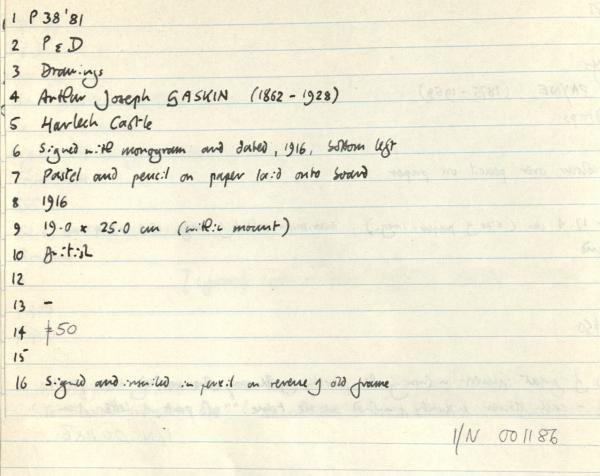 1 P 38'81
2 P & D
3 Drawings
4 Arthur Joseph GASKIN (1862 - 1928)
5 Harlech Castle
6 Signed with monogram and dated, 1916, bottom left
7 Pastel and pencil on paper laid onto board
8 1916
9 19.0 x 25.0 cm (within mount)
10 British
12
13 -
14 £50
15
16 Signed and inscribed in pencil on reverse of old frame
I/N 001186